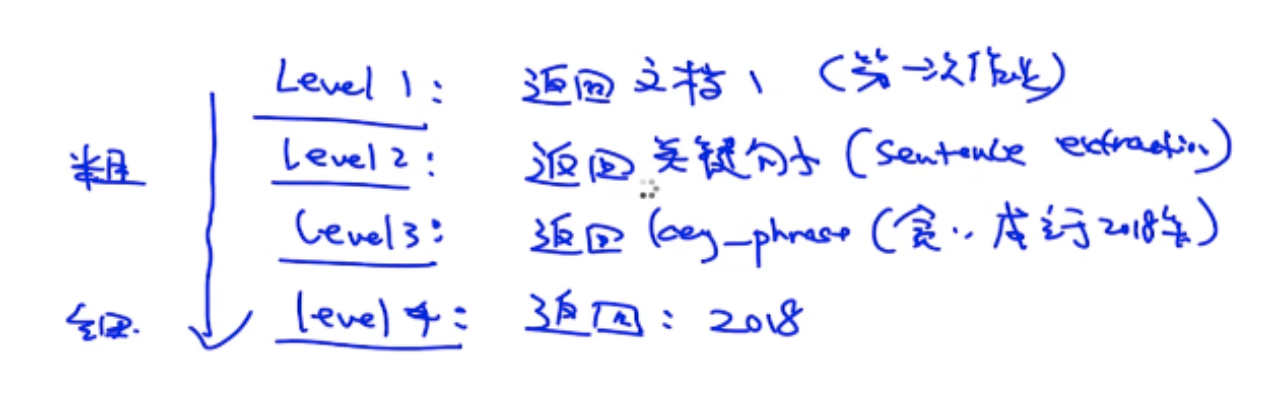 Level 1: 返回文档、(第一次作业)
粗
Level 2: 返回关键句子 (sentence extraction)
Level 3: 返回 key-phrase (含.. 成立于2018年)
细
Level 4: 返回: 2018